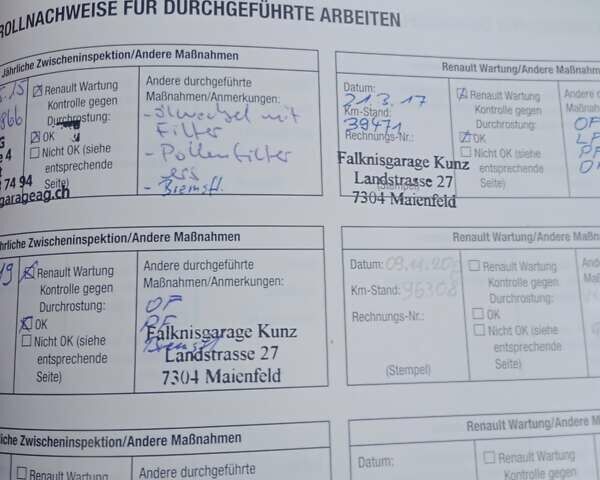 ROLLNACHWEISE FÜR DURCHGEFÜHRTE ARBEITEN
Jährliche Zwischeninspektion/Andere Maßnahmen
Renault Wartung
Kontrolle gegen
Durchrostung:
OK
Nicht OK (siehe
entsprechende
Seite)
74 94
garageag.ch
Andere durchgeführte
Maßnahmen/Anmerkungen:
- Ölwechsel mit
Filter
- Pollenfilter
ers
- Bremsfl.
Renault Wartung/Andere Maßnahm
Datum:
21.3.17
Km-Stand:
39471
Rechnungs-Nr.:
(Stempel)
Falknisgarage Kunz
Landstrasse 27
7304 Maienfeld
Renault Wartung
Kontrolle gegen
Durchrostung:
OK
Nicht OK (siehe
entsprechende
Seite)
Andere d
Maßnah
OF
hrliche Zwischeninspektion/Andere Maßnahmen
19
Renault Wartung
Kontrolle gegen
Durchrostung:
OK
Nicht OK (siehe
entsprechende
Seite)
Andere durchgeführte
Maßnahmen/Anmerkungen:
OF
PF
Bremsfl
Falknisgarage Kunz
Landstrasse 27
7304 Maienfeld
Renault Wartung/Andere Maßn
Datum:
Km-Stand:
96308
Rechnungs-Nr.:
(Stempel)
Renault Wartung
Kontrolle gegen
Durchrostung:
OK
Nicht OK (siehe
entsprechende
Seite)
liche Zwischeninspektion/Andere Maßnahmen
Renault Wartung
Andere durchgeführte
Renault Wartung/Andere M
Datum:
Renault Wartung
Kontrolle gegen